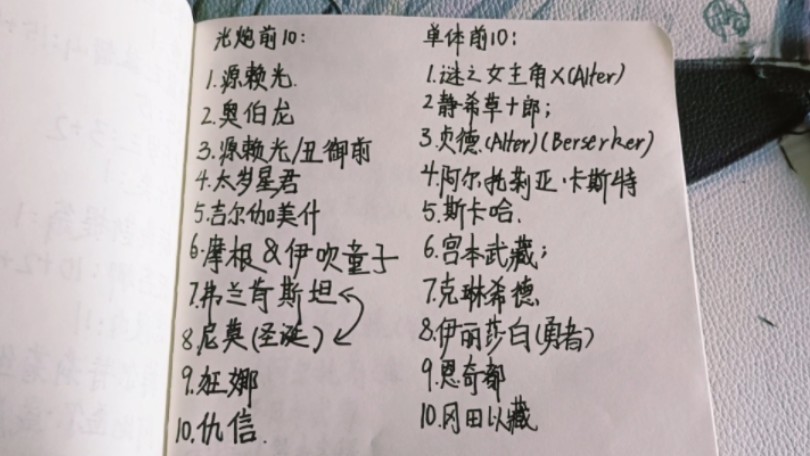 光炮前10:
1.源赖光.
2.奥伯龙
3.源赖光/丑御前
4.太岁星君
5.吉尔伽美什
6.摩根&伊吹童子
7.弗兰肯斯坦
8.尼莫(圣诞)
9.狂娜
10.仇信.
单体前10:
1.谜之女主角X(Alter)
2静希草十郎;
3.贞德(Alter)(Berserker)
4.阿尔托莉亚·卡斯特
5.斯卡哈.
6.宫本武藏;
7.克琳希德
8.伊丽莎白(勇者)
9.恩奇都
10.冈田以藏